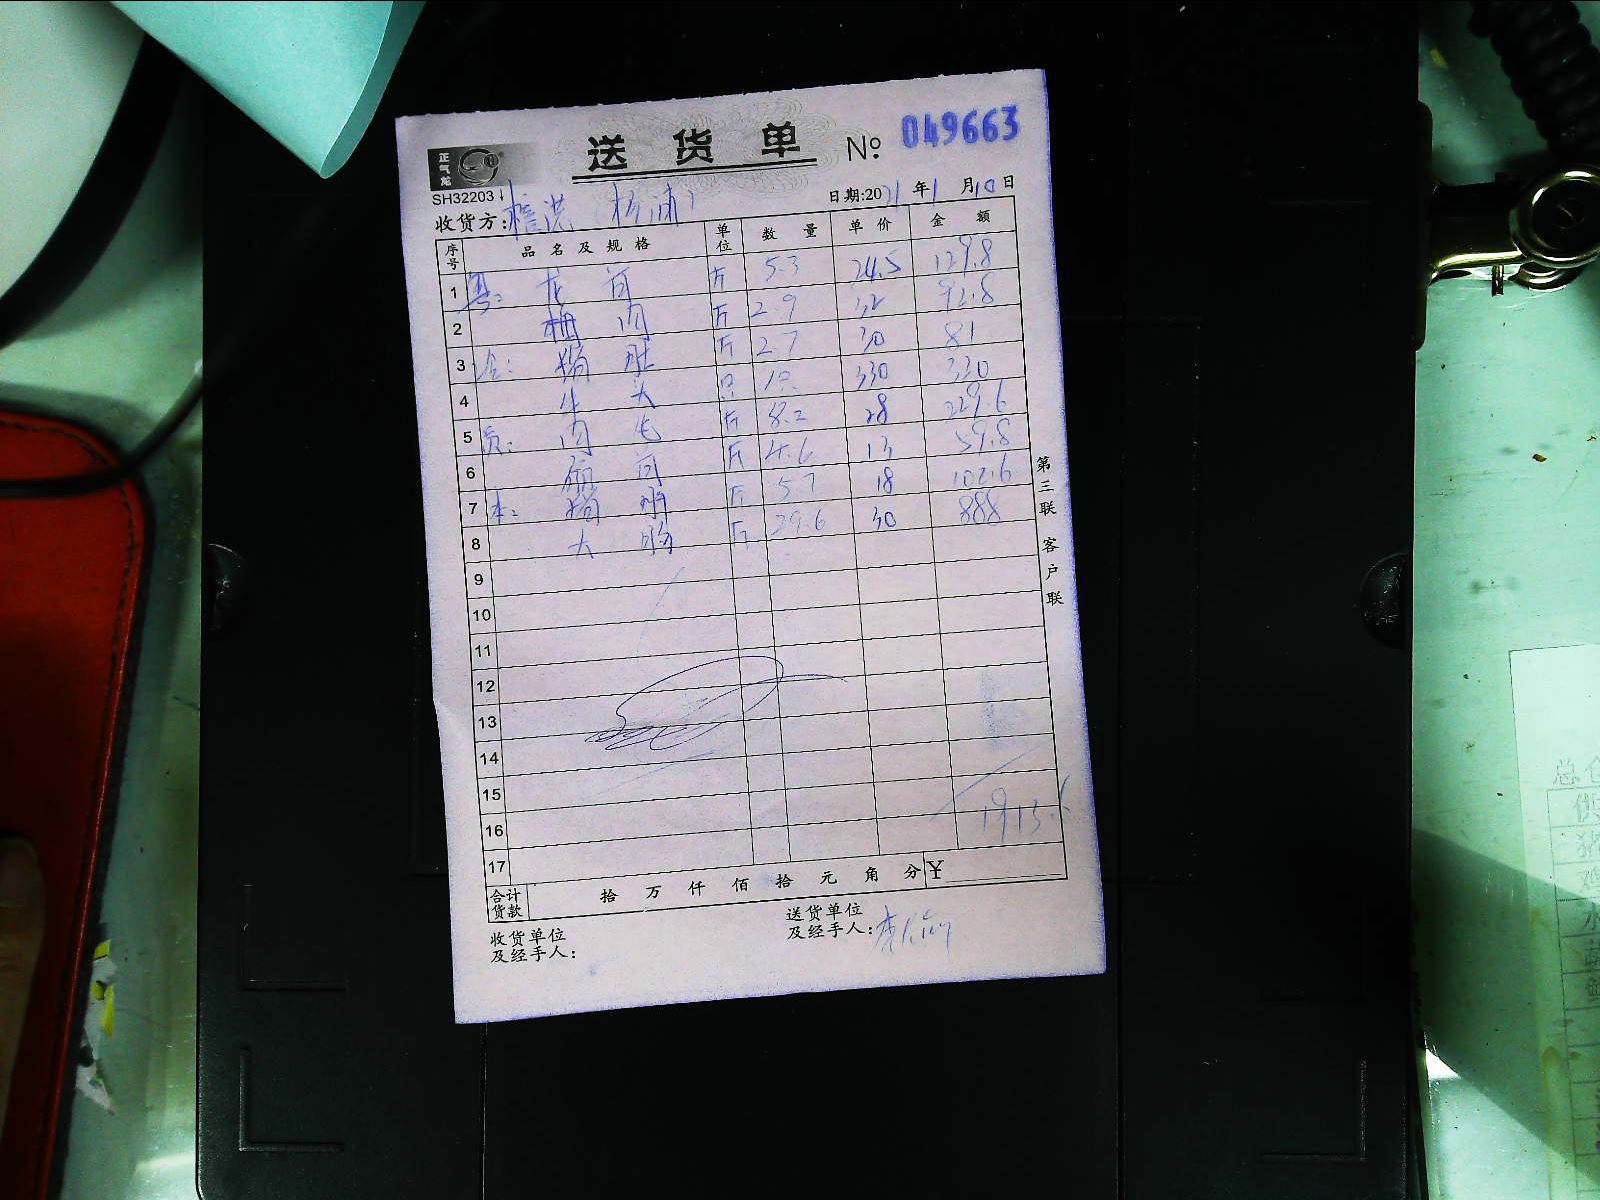 送货单 № 049663
正气龙
SH32203
日期:2021年1月10日
收货方:
序号 品名及规格 单位 数量 单价 金额
1 粤: 龙骨 斤 5.3 24.5 129.8
2 梅肉 斤 2.9 32 92.8
3 猪肚 斤 2.7 30 81
4 牛大 只 1只 330 330
5 肉 斤 8.2 28 229.6
6 扇骨 斤 4.6 13 59.8
7 本: 猪 斤 5.7 18 102.6
8 大肠 斤 29.6 30 888
9
10
11
12
13
14
15
16 1913.6
17
合计货款 拾万仟佰拾元角分 ¥
第三联 客户联
收货单位
及经手人:
送货单位
及经手人:
总仓
供
猪
鸡